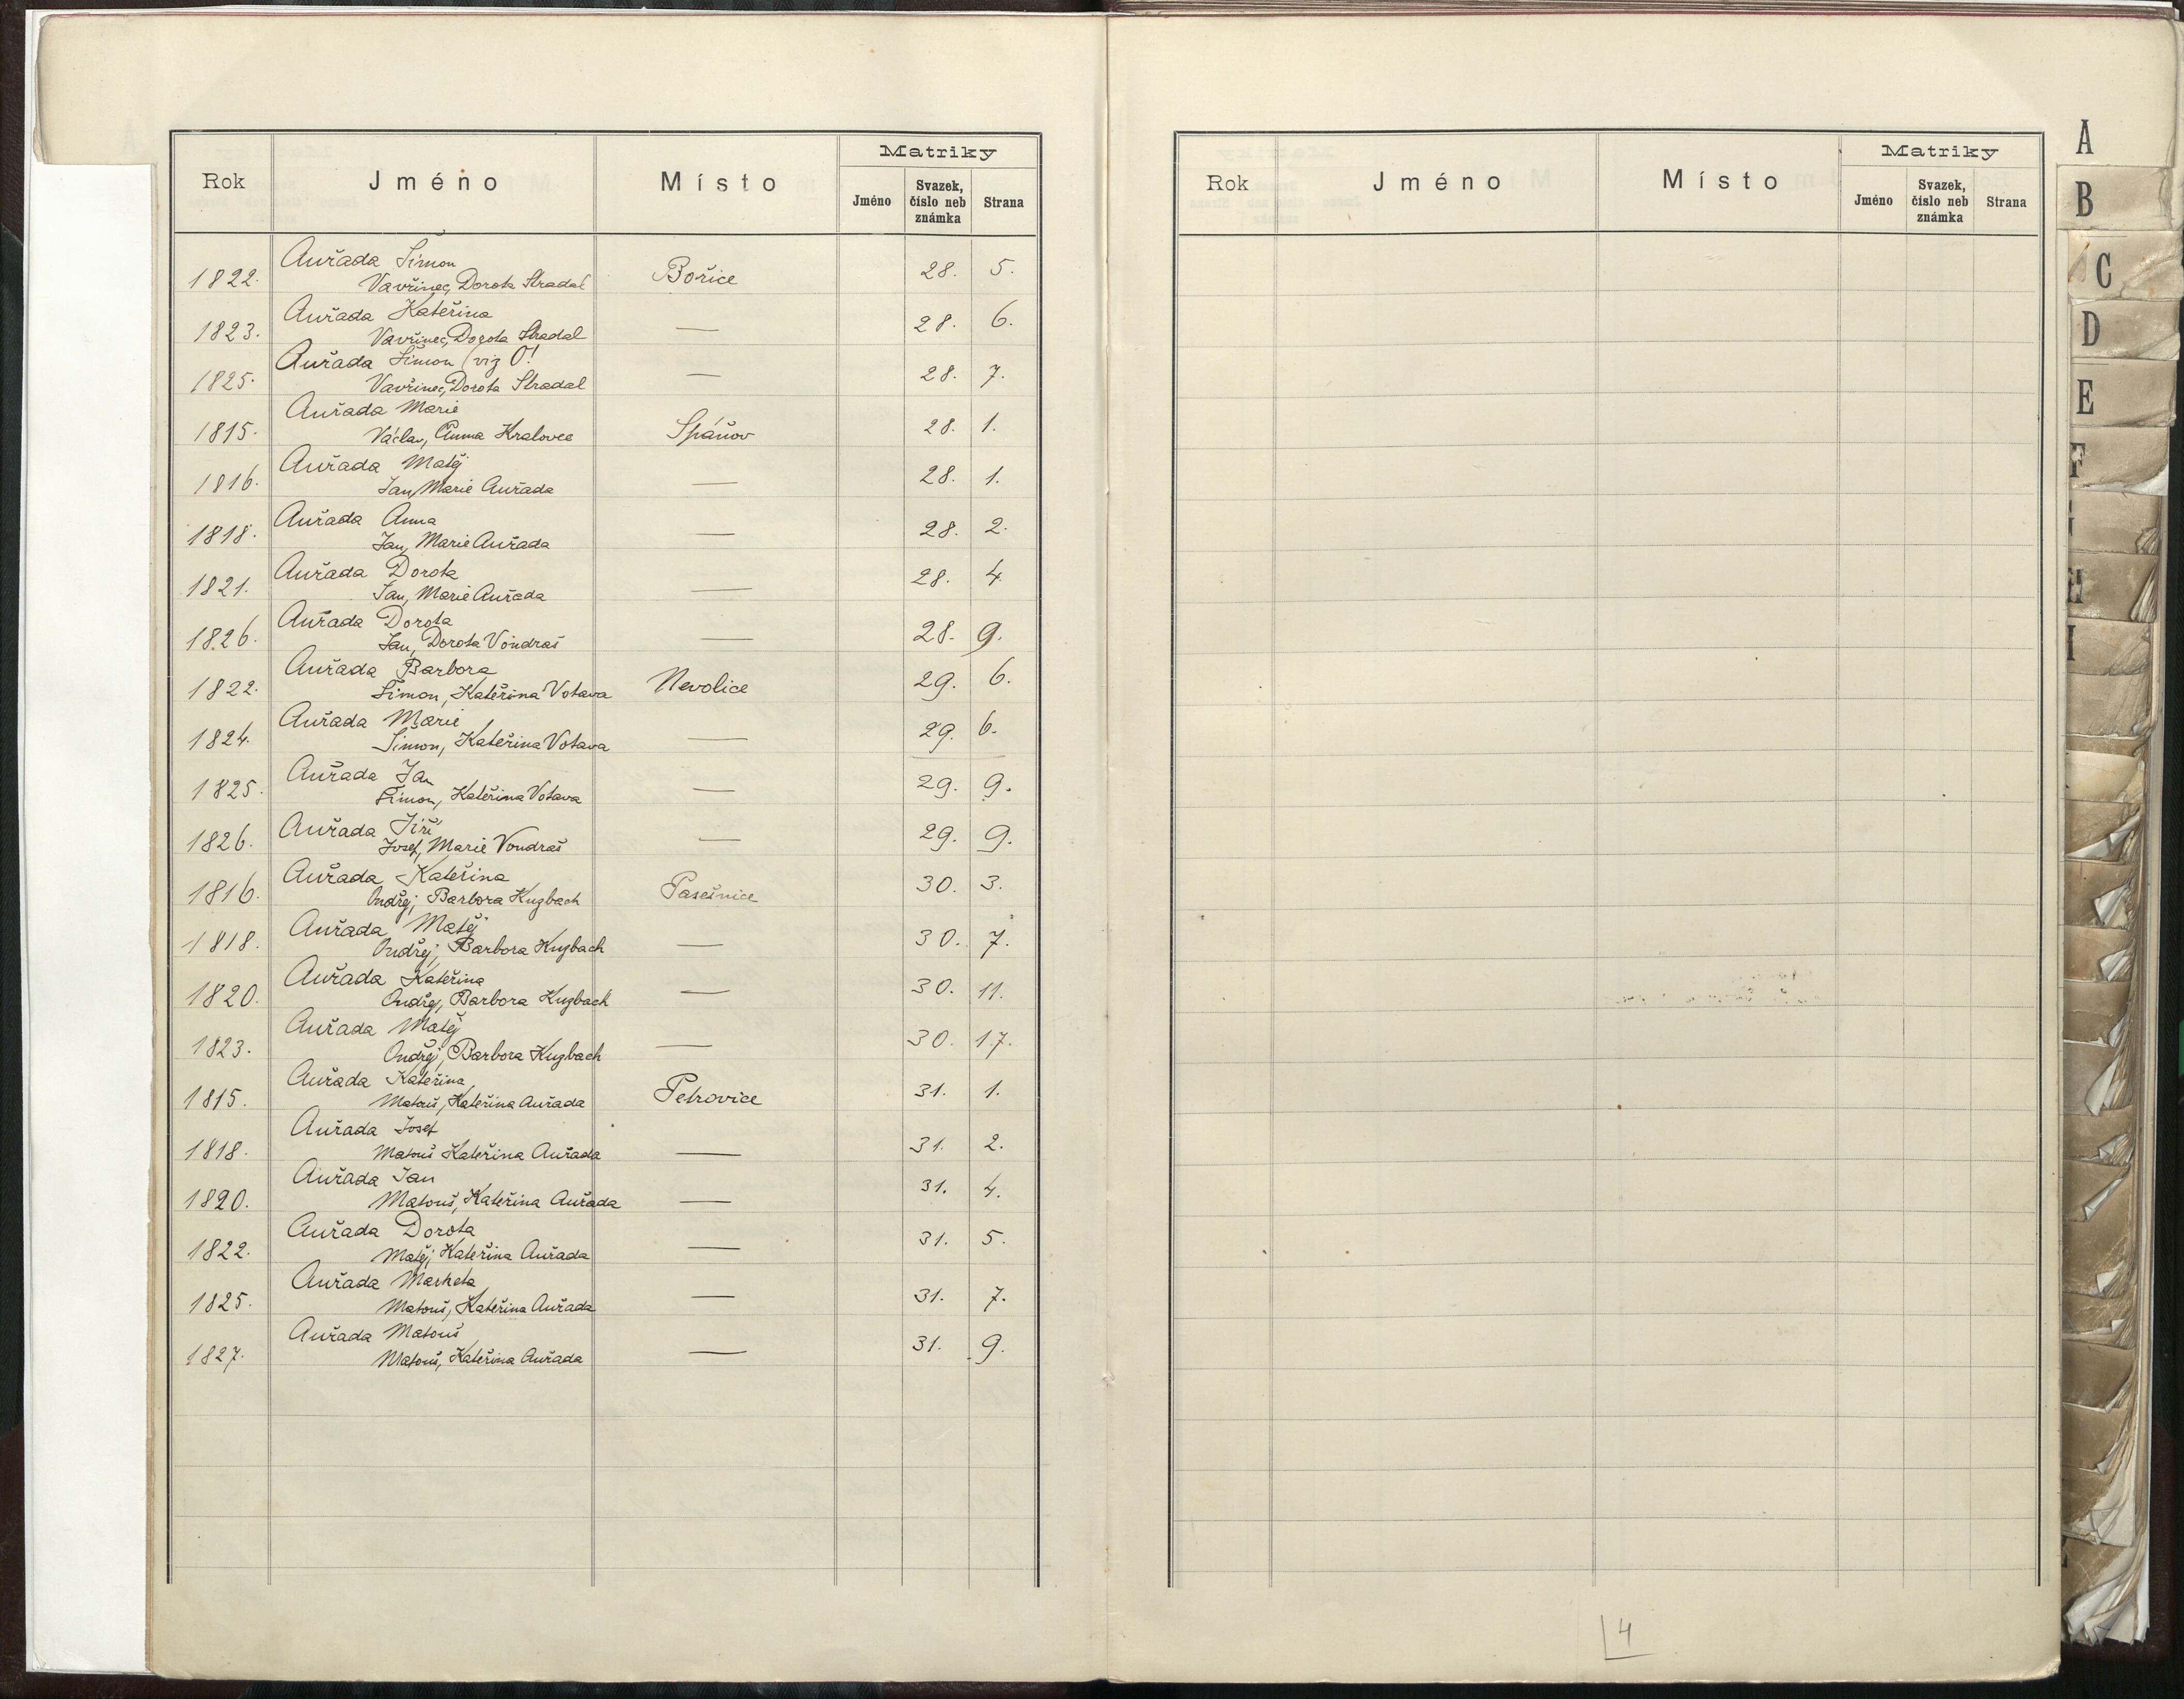 Matriky
Rok Jméno Místo Jméno Svazek, číslo neb známka Strana
Auřada Šimon
1822. Vavřinec, Dorota Stradal Bořice 28. 5.
Auřada Kateřina
1823. Vavřinec, Dorota Stradal — 28. 6.
Auřada Šimon (viz O!
1825. Vavřinec, Dorota Stradal — 28. 7.
Auřada Marie
1815. Václav, Anna Kralovec Spáňov 28. 1.
Auřada Matěj
1816. Jan, Marie Auřada — 28. 1.
Auřada Anna
1818. Jan, Marie Auřada — 28. 2.
Auřada Dorota
1821. Jan, Marie Auřada — 28. 4.
Auřada Dorota
1826. Jan, Dorota Vondraš — 28. 9.
Auřada Barbora
1822. Šimon, Kateřina Votava Nevolice 29. 6.
Auřada Marie
1824. Šimon, Kateřina Votava — 29. 6.
Auřada Jan
1825. Šimon, Kateřina Votava — 29. 9.
Auřada Jiří
1826. Josef, Marie Vondraš — 29. 9.
Auřada Kateřina
1816. Ondřej, Barbora Kuzbach Pasečnice 30. 3.
Auřada Matěj
1818. Ondřej, Barbora Kuzbach — 30. 7.
Auřada Kateřina
1820. Ondřej, Barbora Kuzbach — 30. 11.
Auřada Matěj
1823. Ondřej, Barbora Kuzbach — 30. 17.
Auřada Kateřina
1815. Matouš, Kateřina Auřada Petrovice 31. 1.
Auřada Josef
1818. Matouš Kateřina Auřada — 31. 2.
Auřada Jan
1820. Matouš, Kateřina Auřada — 31. 4.
Auřada Dorota
1822. Matěj, Kateřina Auřada — 31. 5.
Auřada Marketa
1825. Matouš, Kateřina Auřada — 31. 7.
Auřada Matouš
1827. Matouš, Kateřina Auřada — 31. 9.
Matriky
Rok Jméno Místo Jméno Svazek, číslo neb známka Strana
4
A
B
C
D
E
F
H